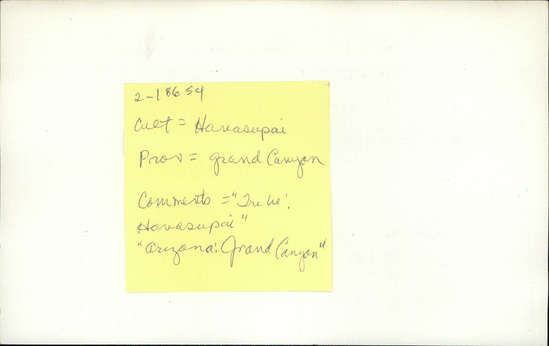 2-18654
Cult = Havasupai
Prov = Grand Canyon
Comments = "Tribe:
Havasupai"
"Arizona: Grand Canyon"